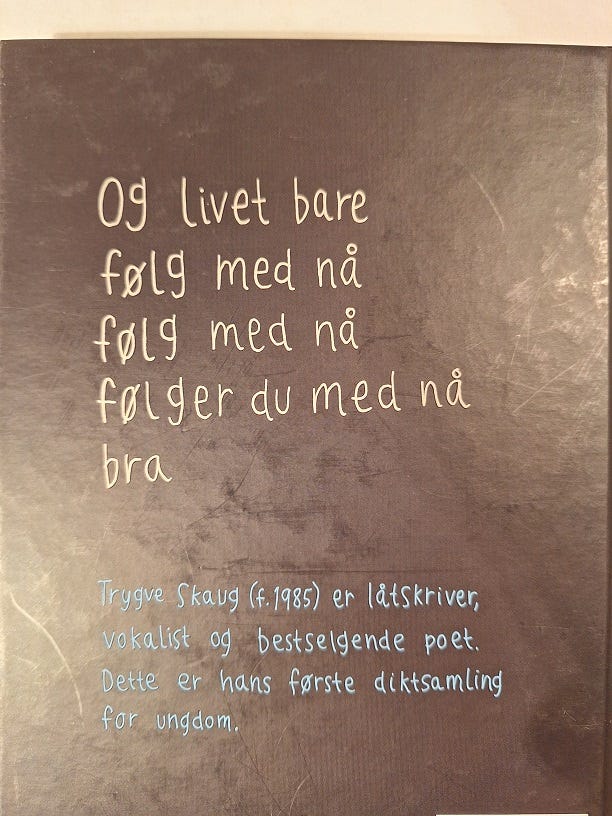 Og livet bare
følg med nå
følg med nå
følger du med nå
bra
Trygve Skaug (f.1985) er låtskriver,
vokalist og bestselgende poet.
Dette er hans første diktsamling
for ungdom.